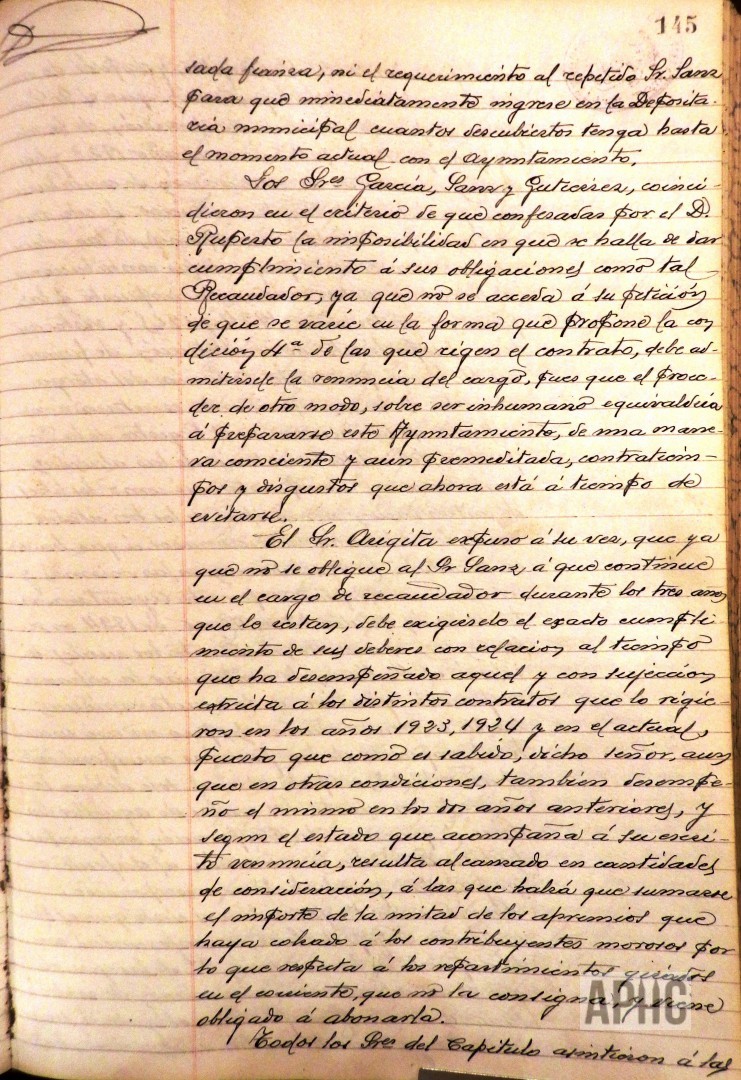 145
sada fianza, ni el requerimiento al repetido Sr. Sanz
para que inmediatamente ingrese en la Deposita-
ria municipal cuantos descubiertos tenga hasta
el momento actual con el Ayuntamiento.
Los Sres García, Sanz y Gutierrez, coinci-
dieron en el criterio de que confesadas por el D.
Ruperto la imposibilidad en que se halla de dar
cumplimiento á sus obligaciones como tal
Recaudador, ya que no se acceda á su petición
de que se varíe en la forma que propone la con
dición 4ª de las que rigen el contrato, debe ad-
mitirsele la renuncia del cargo, pues que el proce-
der de otro modo, sobre ser inhumano equivaldría
á prepararse este Ayuntamiento, de una mane-
ra consciente y aun premeditada, contratiem-
pos y disgustos que ahora está á tiempo de
evitarse.
El Sr. Arigita expuso á su vez, que ya
que no se obligue al Sr Sanz á que continúe
en el cargo de recaudador durante los tres años
que le restan, debe exigirsele el exacto cumpli-
miento de sus deberes con relacion al tiempo
que ha desempeñado aquel y con sujeccion
estricta á los distintos contratos que lo rigie-
ron en los años 1923, 1924 y en el actual,
puesto que como es sabido, dicho señor, aun
que en otras condiciones, tambien desempe-
ño el mismo en los dos años anteriores, y
segun el estado que acompaña á su escri-
to renuncia, resulta alcanzado en cantidades
de consideración, á las que habrá que sumarse
el importe de la mitad de los apremios que
haya cobrado á los contribuyentes morosos por
lo que respecta á los repartimientos girados
en el corriente, que no la consigna y viene
obligado á abonarla.
Todos los Sres del Capitulo asintieron á las
APHG